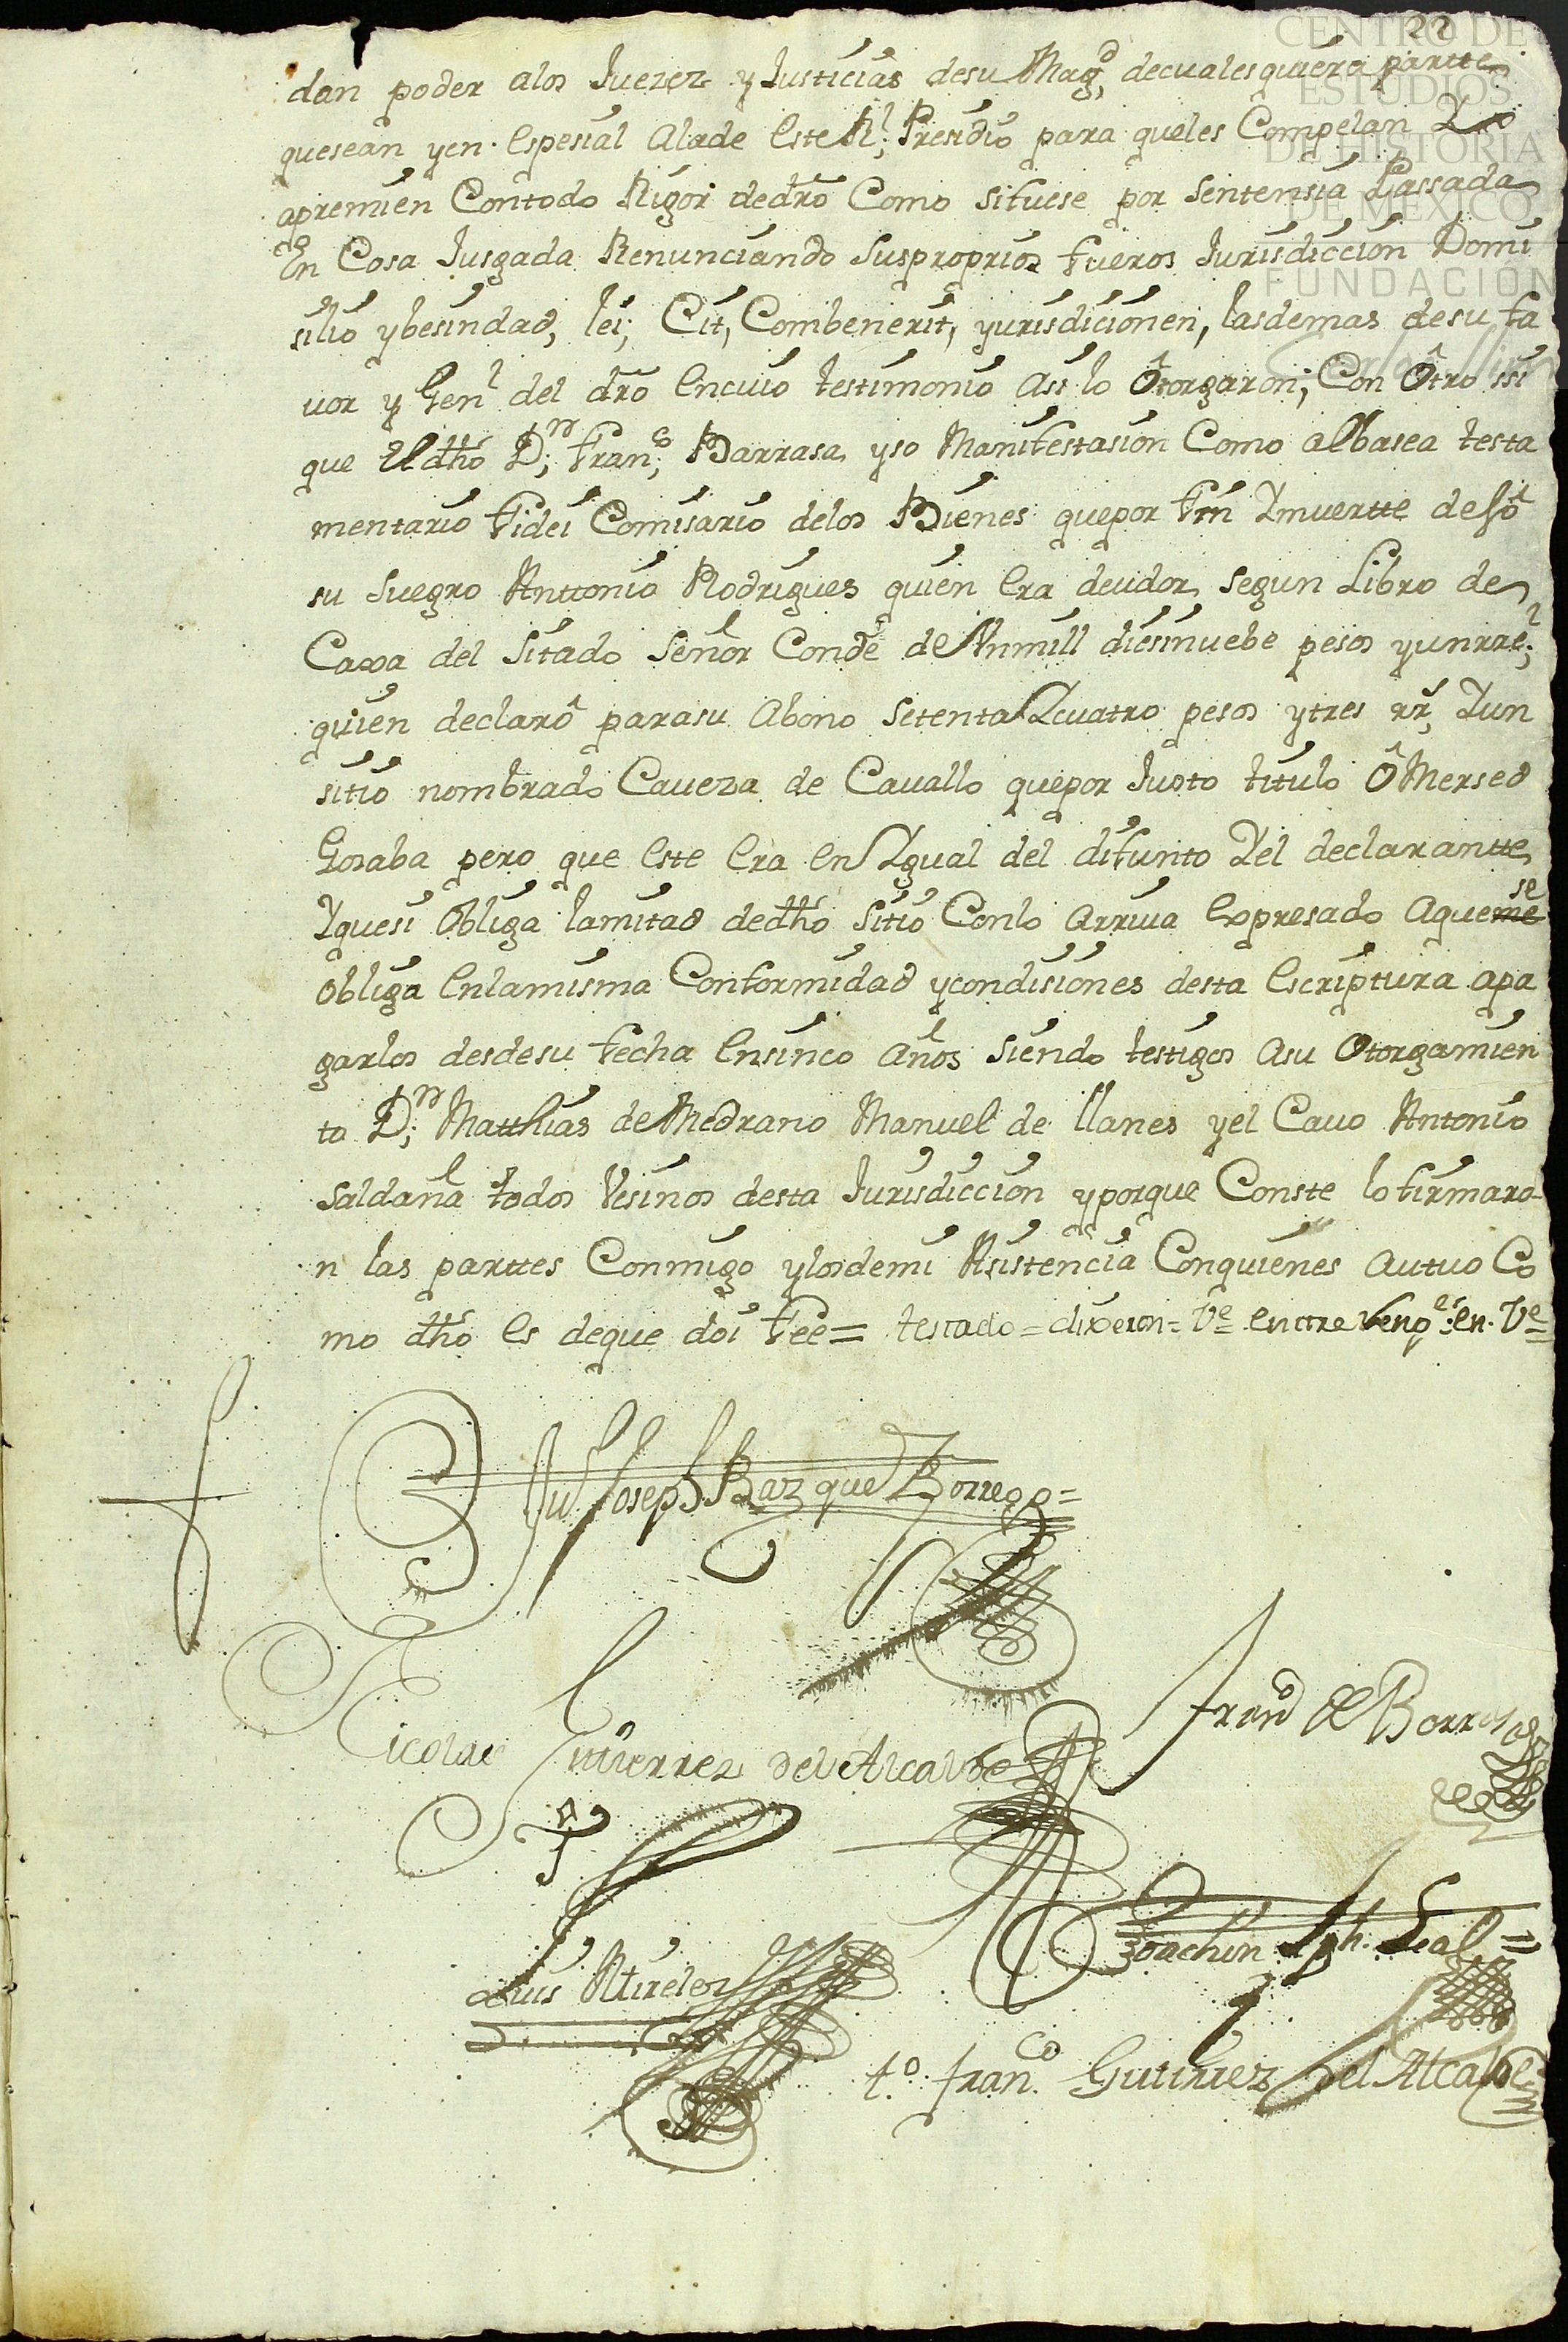 22
CENTRO DE
ESTUDIOS
DE HISTORIA
DE MEXICO
FUNDACIÓN
Carlos Slim
dan poder alos Juezez y Justicias desu Mag.d decualesquiera partte
quesean yen Espesial Alade Este Rl; Presidio para queles Compelan Y
apremien Contodo Rigor dedro Como sifuese por Sentensia Passada
En Cosa Jusgada Renunciando Susproprios fueros Jurisdiccion Domi
silio ybesindad, lei; Cit, Combenerit, yurisdicionen, lasdemas desu fa
uor y Gen.l del dro Encuio testimonio Assi lo Otorgaron; Con Otro ssi
que El dho D.n; Fran.co; Barrasa yso Manifestasion Como albasea testa
mentario Fidei Comisario delos Bienes quepor Fin Ymuertte de
su Suegro Anttonio Rodrigues quien Era deudor segun Libro de
Caxa del Sitado Señor Conde de Vnmill diesinuebe pesos yunrre.l;
quien declaró parasu Abono Setenta Ycuatro pesos ytres rr.s, Yun
sitio nombrado Caveza de Cavallo quepor Justo titulo Ô Mersed
Gosaba pero que Este Era En Ygual del difunto Yel declarantte
Yquesi Obliga lamitad dedho Sitio Conlo Arriua Expresado Aqueme se
Obliga Enlamisma Conformidad ycondisiones desta Escriptura apa
garlos desdesu fecha Ensinco Años Siendo testigos Asu Otorgamien
to D.n; Matthias de Medrano Manuel de llanes yel Cauo Antonio
Saldaña todos Vesinos desta Jurisdiccion yporque Conste lo firmaro
n las parttes Conmigo ylosdemi Asistencia Conquienes Auttuo Co
mo dho Es deque doi Fee= testado=dixeron= Ve enttre Reng.es en. Ve
Ju Joseph Bazquez Borrego=
Nicolas Gutierrez del Alcalde
Franco de Barrasa
Luis Mireles
Joachin Jph. Leal=
t.o fran.co Gutierrez del Alcalde